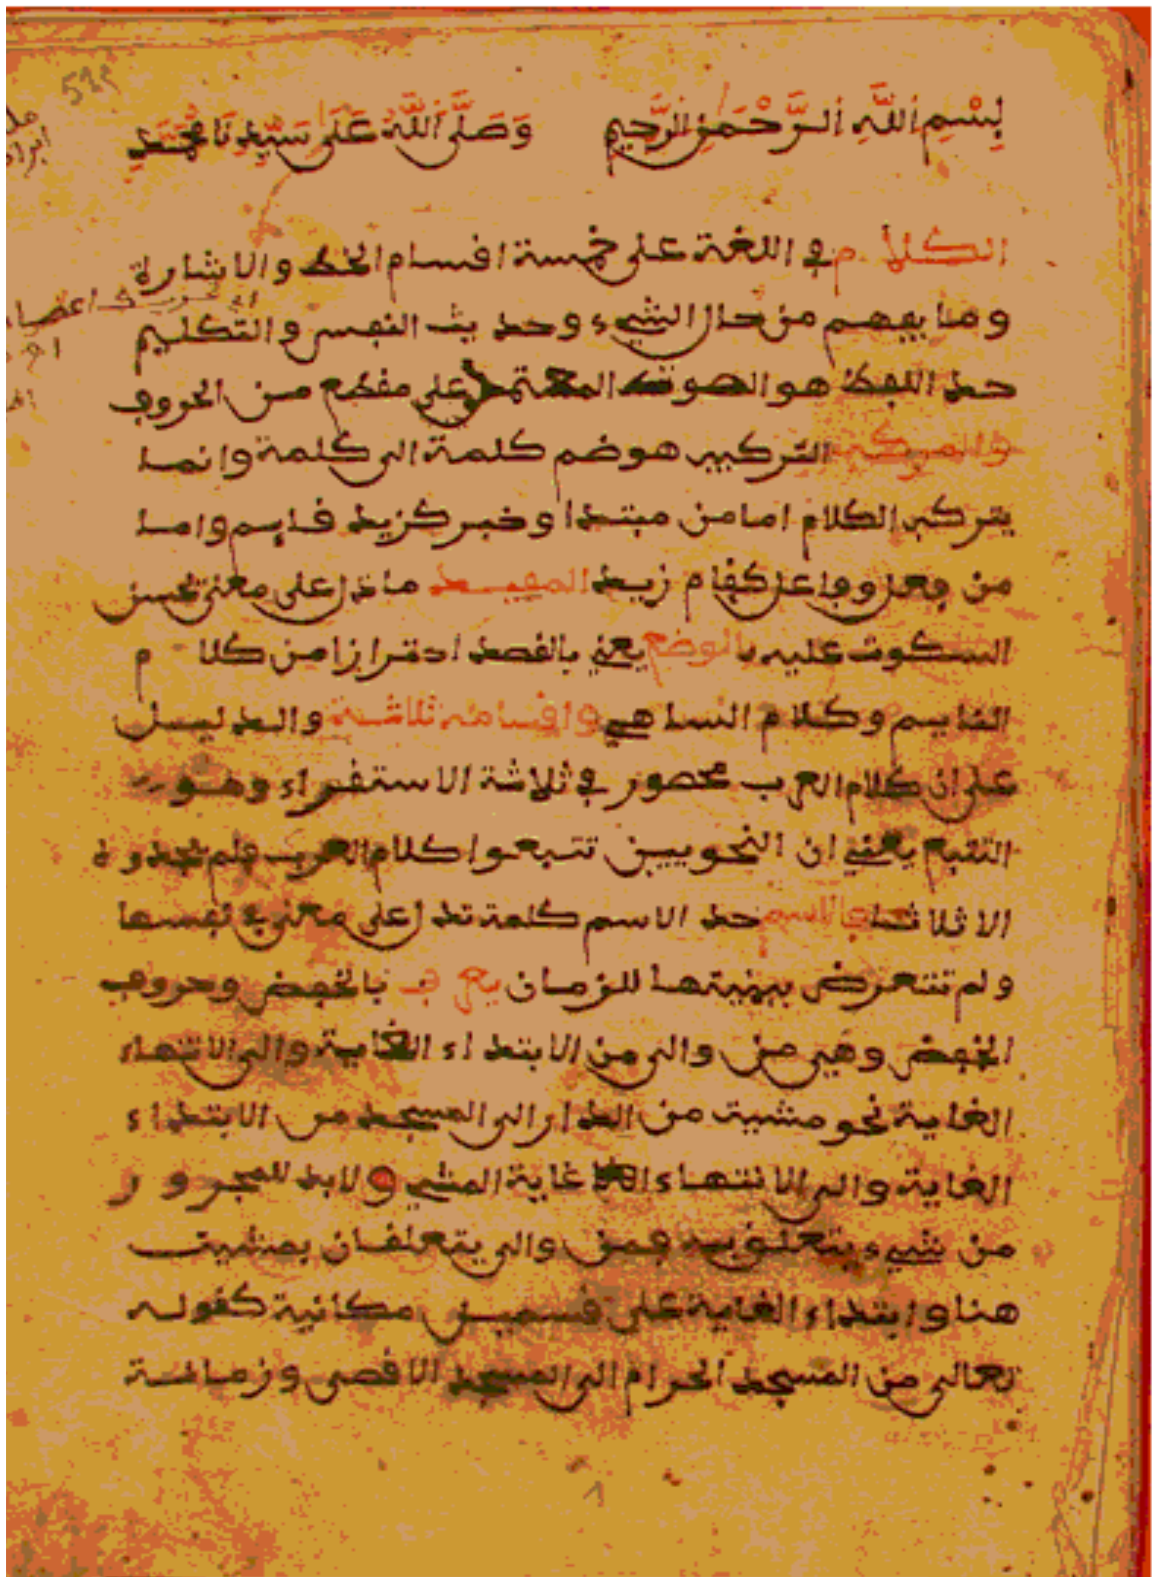 بِسْمِ اللَّهِ الرَّحْمَنِ الرَّحِيمِ وَصَلَّى اللَّهُ عَلَى سَيِّدِنَا مُحَمَّدٍ
الكلام في اللغة على خمسة اقسام الخط والاشارة
وما يفهم من حال الشيء وحديث النفس والتكليم
حد اللفظ هو الصوت المعتمد على مقطع من الحروف
والمركب التركيب هو ضم كلمة الى كلمة وانما
يتركب الكلام اما من مبتدا وخبر كزيد قايم واما
من فعل وفاعل كقام زيد المفيد ما دل على معنى يحسن
السكوت عليه بالوضع يعني بالقصد احترازا من كلام
النايم وكلام الساهي واقسامه ثلاثة والدليل
على ان كلام العرب محصور في ثلاثة الاستقراء وهو
التتبع يعني ان النحويين تتبعوا كلام العرب فلم يجدوه
الا ثلاثة فالاسم حد الاسم كلمة تدل على معنى في نفسها
ولم تتعرض ببنيتها للزمان يعرف بالخفض وحروف
الخفض وهي من والى من الابتداء الغاية والى الانتهاء
الغاية نحو مشيت من الدار الى المسجد من الابتداء
الغاية والى الانتهاء غاية المشي ولابد للمجرور
من شيء يتعلق به فمن والى يتعلقان بمشيت
هنا وابتداء الغاية على قسمين مكانية كقوله
تعالى من المسجد الحرام الى المسجد الاقصى وزمانية